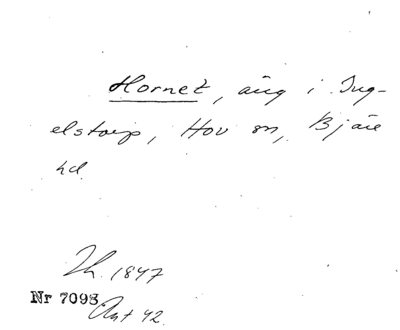 Hornet, äng i Ing-
elstorp, Hov sn, Bjäre
hd
Th. 1847
Nr 7098
Ant 42